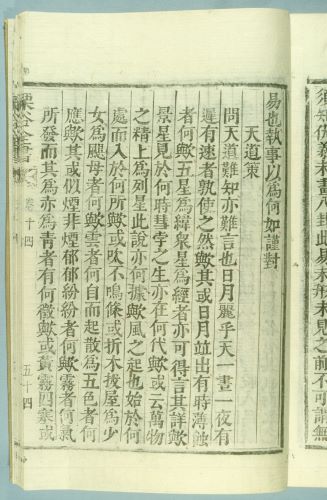 須知伏羲未畫八卦此易未形未見之前不可謂無
易也執事以爲何如謹對
天道策
問天道難知亦難言也日月麗乎天一晝一夜有
遲有速者孰使之然歟其或日月竝出有時薄蝕
者何歟五星爲緯衆星爲經者亦可得言其詳歟
景星見於何時彗孛之生亦在何代歟或云萬物
之精上爲列星此說亦何據歟風之起也始於何
處而入於何所歟或吹不鳴條或折木拔屋爲少
女爲颶母者何歟雲者何自而起散爲五色者何
應歟其或似煙非煙郁郁紛紛者何歟霧者何氣
所發而其爲赤爲青者有何徵歟或黃霧四塞或
栗谷全書 卷十四 五十四